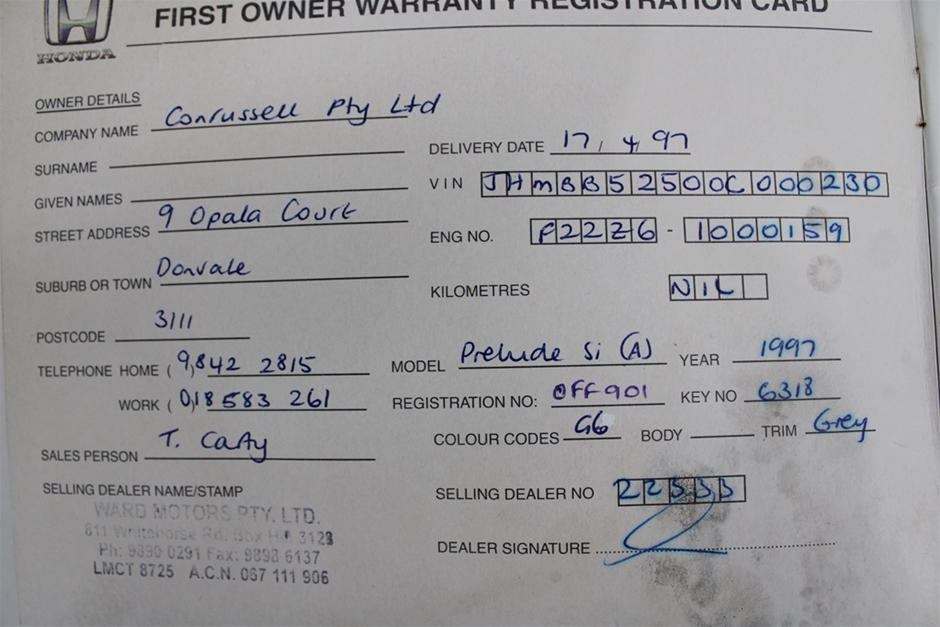 FIRST OWNER WARRANTY REGISTRATION CARD
HONDA
OWNER DETAILS
COMPANY NAME Conrussell Pty Ltd
SURNAME
GIVEN NAMES
STREET ADDRESS 9 Opala Court
SUBURB OR TOWN Donvale
POSTCODE 3111
TELEPHONE HOME ( 9,842 2815
WORK ( 0,18 583 261
SALES PERSON T. Carty
SELLING DEALER NAME/STAMP
WARD MOTORS PTY. LTD.
811 Whitehorse Rd. Box Hill 3128
Ph: 9890 0291 Fax: 9898 6137
LMCT 8725 A.C.N. 067 111 906
DELIVERY DATE 17 / 4 / 97
VIN JHMBB52500C000230
ENG NO. F22Z6 - 1000159
KILOMETRES NIL
MODEL Prelude Si (A) YEAR 1997
REGISTRATION NO: OFF901 KEY NO 6318
COLOUR CODES G6 BODY TRIM Grey
SELLING DEALER NO 22333
DEALER SIGNATURE